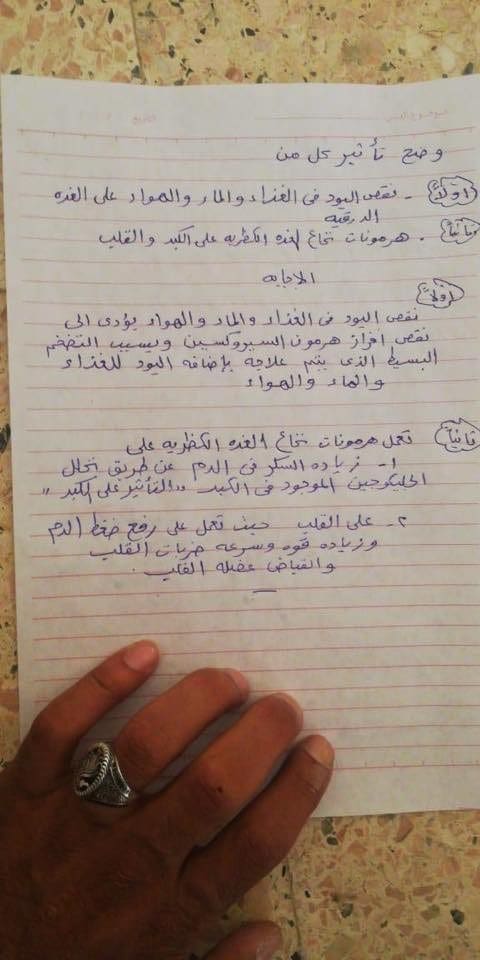 وضح تأثير كل من
اولاً - نقص اليود فى الغذاء والماء والهواء على الغده
الدرقيه
ثانياً - هرمونات نخاع الغده الكظريه على الكبد والقلب
الاجابه
اولاً
نقص اليود فى الغذاء والماء والهواء يؤدى الى
نقص افراز هرمون السيروكسين ويسبب التضخم
البسيط الذى يتم علاجه بإضافه اليود للغذاء
والماء والهواء
ثانياً تعمل هرمونات نخاع الغده الكظريه على
١- زياده السكر فى الدم عن طريق انحلال
الجليكوجين الموجود فى الكبد "التأثير على الكبد"
٢- على القلب حيث تعمل على رفع ضغط الدم
وزياده قوه وسرعه ضربات القلب
وانقباض عضله القلب.